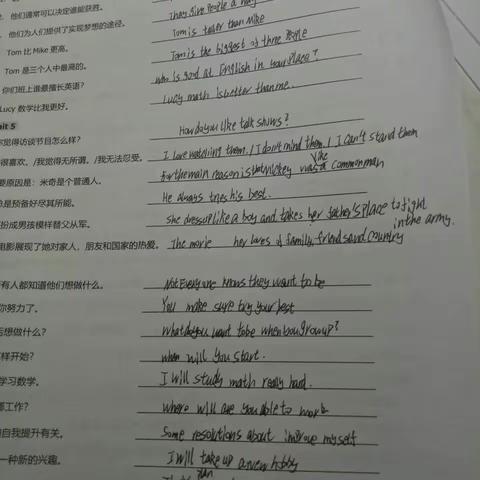 2. 他们通常可以决定谁能获胜。
They give people a way
他们为人们提供了实现梦想的途径。
Tom is taller than Mike
Tom 比 Mike 更高。
Tom is the biggest of three people
Tom 是三个人中最高的。
who is good at English in your place?
你们班上谁最擅长英语?
Lucy math is better than me.
Lucy 数学比我更好。
nit 5
How do you like talk shows?
你觉得访谈节目怎么样?
I love watching them. / I don't mind them. / I can't stand them
很喜欢。/我觉得无所谓。/我无法忍受。
for the main reason is that Mickey was like a common man
要原因是:米奇是个普通人。
He always tries his best.
总是预备好尽其所能。
She dress up like a boy and takes her father's place to fight in the army.
扮成男孩模样替父从军。
The movie her loves of family, friends and country
电影展现了她对家人,朋友和国家的热爱。
Not Everyone knows they want to be
所有人都知道他们想做什么。
You make sure try your best
你努力了。
What do you want to be when you grow up?
后想做什么?
when will you start.
怎样开始?
I will study math really hard.
学习数学。
where will are you able to work
哪工作?
Some resolutions about improve myself
自我提升有关。
I will take up a new hobby
一种新的兴趣。
plan